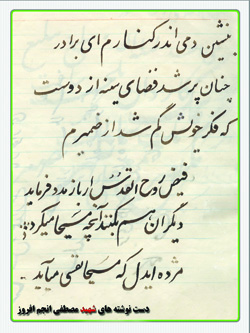 بنشین دمی اندر کنارم ای برادر
چنان پر شد فضای سینه از دوست
که فکر خویش گم شد از ضمیرم
فیض روح القدس ار باز مدد فرماید
دیگران هم بکنند آنچه مسیحا میکرد
مژده ایدل که مسیحا نفسی میآید
دست نوشته های شهید مصطفی انجم افروز